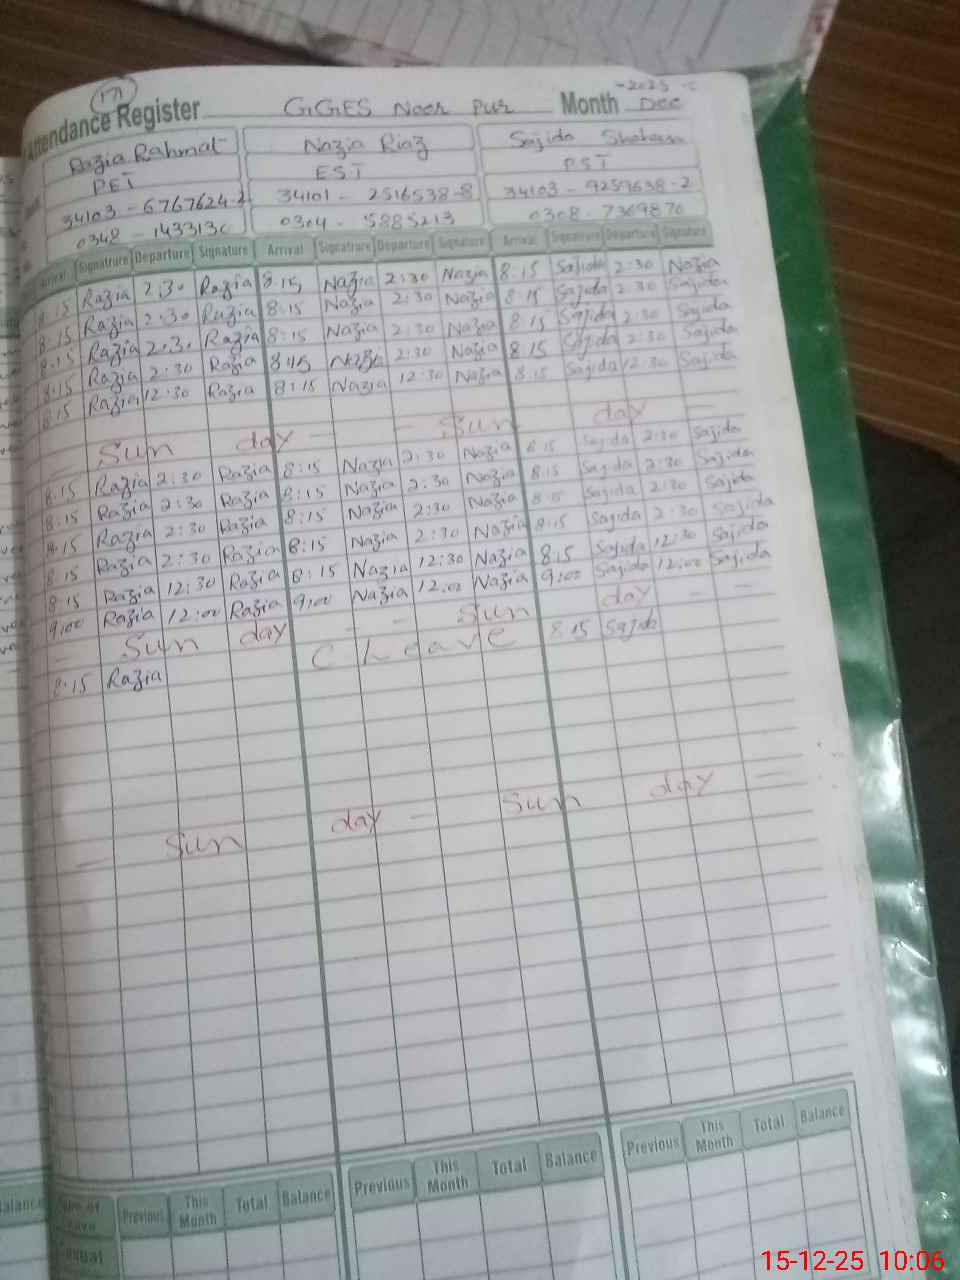 171
Attendance Register GGES Noor Pur Month Dec
-2025
Razia Rahmat Nazia Riaz Sajida Shaheen
PET EST PST
34103-6767624-2 34101-2516538-8 34103-9259638-2
0348-143313 0304-5885213 0308-7369870
Arrival Signatrure Departure Signature Arrival Signatrure Departure Signature Arrival Signatrure Departure Signature
8:15 Razia 2:30 Razia 8:15 Nazia 2:30 Nazia 8:15 Sajida 2:30 Nazia
8:15 Razia 2:30 Razia 8:15 Nazia 2:30 Nazia 8:15 Sajida 2:30 Sajida
8:15 Razia 2:30 Razia 8:15 Nazia 2:30 Nazia 8:15 Sajida 2:30 Sajida
8:15 Razia 2:30 Razia 8:15 Nazia 2:30 Nazia 8:15 Sajida 2:30 Sajida
8:15 Razia 12:30 Razia 8:15 Nazia 12:30 Nazia 8:15 Sajida 12:30 Sajida
- Sun day - - Sun day -
8:15 Razia 2:30 Razia 8:15 Nazia 2:30 Nazia 8:15 Sajida 2:30 Sajida
8:15 Razia 2:30 Razia 8:15 Nazia 2:30 Nazia 8:15 Sajida 2:30 Sajida
8:15 Razia 2:30 Razia 8:15 Nazia 2:30 Nazia 8:15 Sajida 2:30 Sajida
8:15 Razia 2:30 Razia 8:15 Nazia 2:30 Nazia 8:15 Sajida 2:30 Sajida
8:15 Razia 12:30 Razia 8:15 Nazia 12:30 Nazia 8:15 Sajida 12:30 Sajida
9:00 Razia 12:00 Razia 9:00 Nazia 12:00 Nazia 9:00 Sajida 12:00 Sajida
- Sun day - - Sun day - -
8:15 Razia C Leave 8:15 Sajida
- Sun day - Sun day -
Previous This Month Total Balance Previous This Month Total Balance Previous This Month Total Balance
15-12-25 10:06